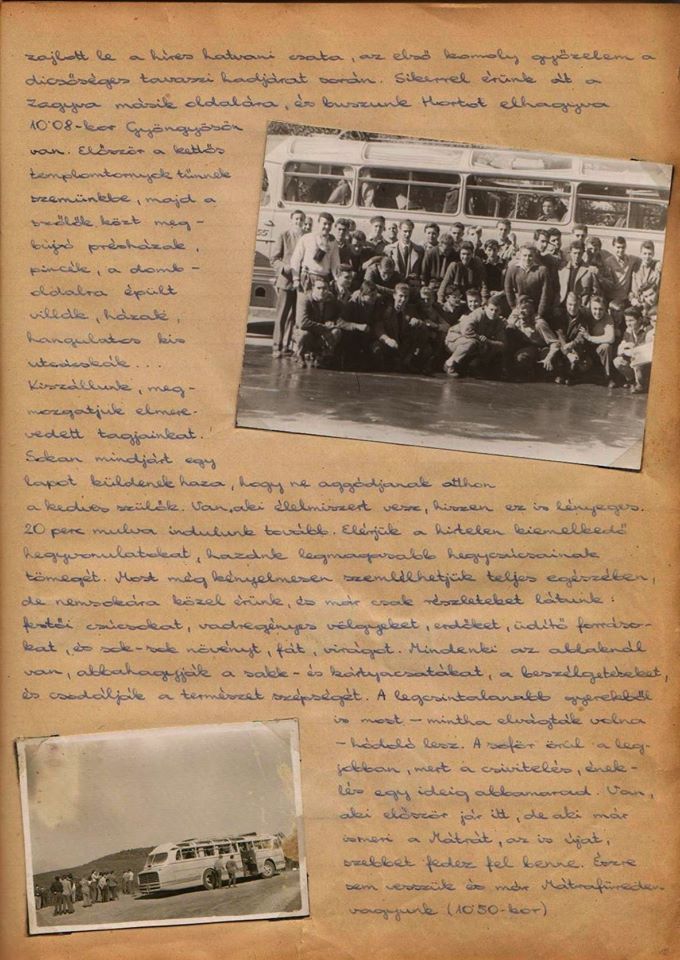 zajlott le a híres hatvani csata, az első komoly győzelem a
dicsőséges tavaszi hadjárat során. Sikerrel érünk át a
Zagyva másik oldalára, és buszunk Hortot elhagyva
10'08-kor Gyöngyösön
van. Először a kettős
templomtornyok tűnnek
szemünkbe, majd a
szőlők közt meg-
búvó présházak,
pincék, a domb-
oldalra épült
villák, házak,
hangulatos kis
utcácskák...
Kiszállunk, meg-
mozgatjuk elmere-
vedett tagjainkat.
Sokan mindjárt egy
lapot küldenek haza, hogy ne aggódjanak otthon
a kedves szülők. Van, aki élelmiszert vesz, hiszen ez is lényeges.
20 perc mulva indulunk tovább. Elérjük a hirtelen kiemelkedő
hegyvonulatokat, hazánk legmagasabb hegycsúcsainak
tömegét. Most még kényelmesen szemlélhetjük teljes egészében,
de nemsokára közel érünk, és már csak részleteket látunk:
festői csúcsokat, vadregényes völgyeket, erdőket, üdítő forráso-
kat, és sok-sok növényt, fát, virágot. Mindenki az ablaknál
van, abbahagyják a sakk- és kártyacsatákat, a beszélgetéseket,
és csodálják a természet szépségét. A legcsintalanabb gyerekből
is most – mintha elvágták volna
– hódoló lesz. A sofőr örül a leg-
jobban, mert a csivitelés, ének-
lés egy ideig abbamarad. Van,
aki először jár itt, de aki már
ismeri a Mátrát, az is újat,
szebbet fedez fel benne. Észre
sem vesszük és már Mátrafüreden
vagyunk (10'50-kor)
55